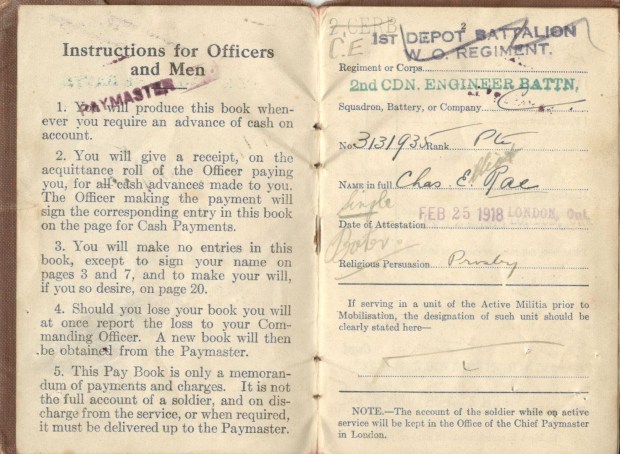 Instructions for Officers
and Men
PAYMASTER
1. You will produce this book when-
ever you require an advance of cash on
account.
2. You will give a receipt, on the
acquittance roll of the Officer paying
you, for all cash advances made to you.
The Officer making the payment will
sign the corresponding entry in this book
on the page for Cash Payments.
3. You will make no entries in this
book, except to sign your name on
pages 3 and 7, and to make your will,
if you so desire, on page 20.
4. Should you lose your book you will
at once report the loss to your Com-
manding Officer. A new book will then
be obtained from the Paymaster.
5. This Pay Book is only a memoran-
dum of payments and charges. It is not
the full account of a soldier, and on dis-
charge from the service, or when required,
it must be delivered up to the Paymaster.
C.E
1ST DEPOT BATTALION
2
W. O. REGIMENT.
Regiment or Corps
2nd CDN. ENGINEER BATTN,
Squadron, Battery, or Company
No. 3131935 Rank Pte
Name in full Chas E. Rae
Elliott
Single
Date of Attestation FEB 25 1918 LONDON, Ont.
Religious Persuasion Presby
If serving in a unit of the Active Militia prior to
Mobilisation, the designation of such unit should be
clearly stated here—
NOTE.—The account of the soldier while on active
service will be kept in the Office of the Chief Paymaster
in London.